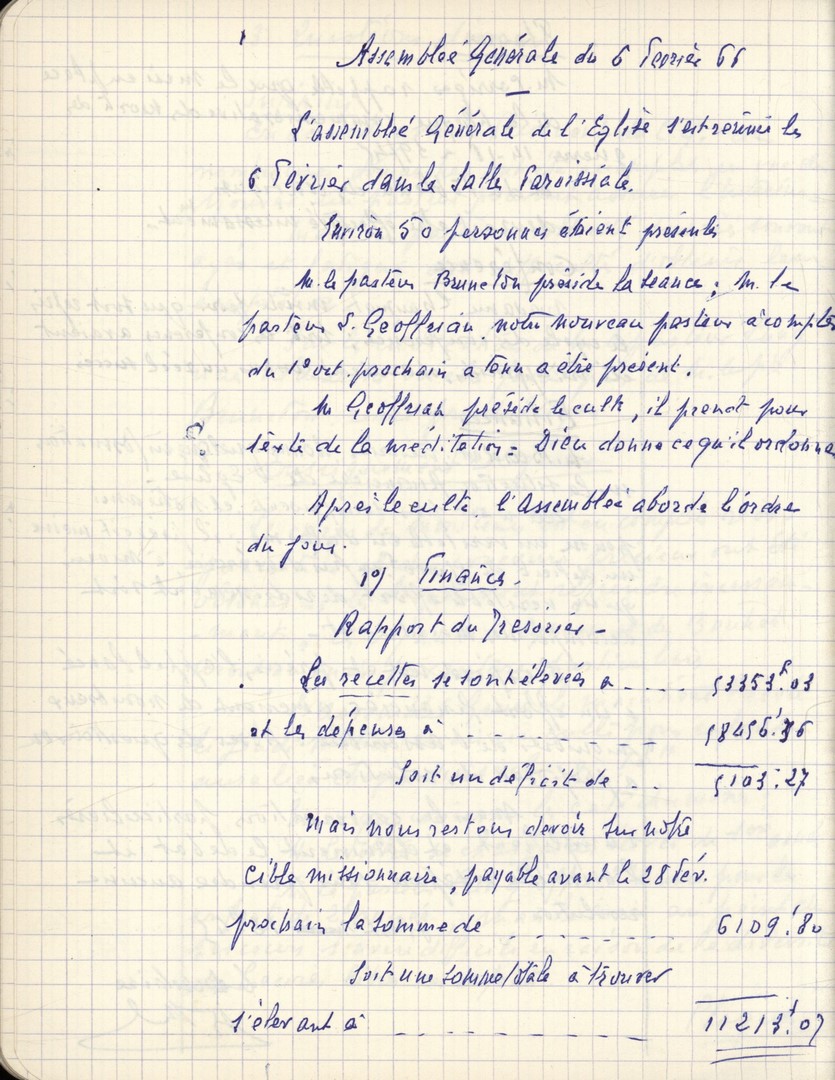 Assemblée Générale du 6 Fevrier 66
L'assemblée Générale de l'Eglise s'est réunie le
6 Février dans la Salle Paroissiale.
Environ 50 personnes étaient présentes
M. le pasteur Bruneton préside la séance ; M. le
pasteur S. Geoffrian, notre nouveau pasteur à compter
du 1º oct. prochain a tenu a être présent.
M Geoffrian préside le culte, il prend pour
texte de la méditation = Dieu donne ce qu'il ordonne
Après le culte, l'Assemblée aborde l'ordre
du jour.
1º) Finances.
Rapport du Trésorier -
Les recettes se sont élevées a ---- 53353f.03
et les dépenses à ---------- 58456f.36
Soit un déficit de --- 5103.27
Mais nous restons devoir sur notre
cible missionnaire, payable avant le 28 fév.
prochain la somme de -------- 6109f.80
Soit une somme totale à trouver
s'élevant à ---------- 11213f.07